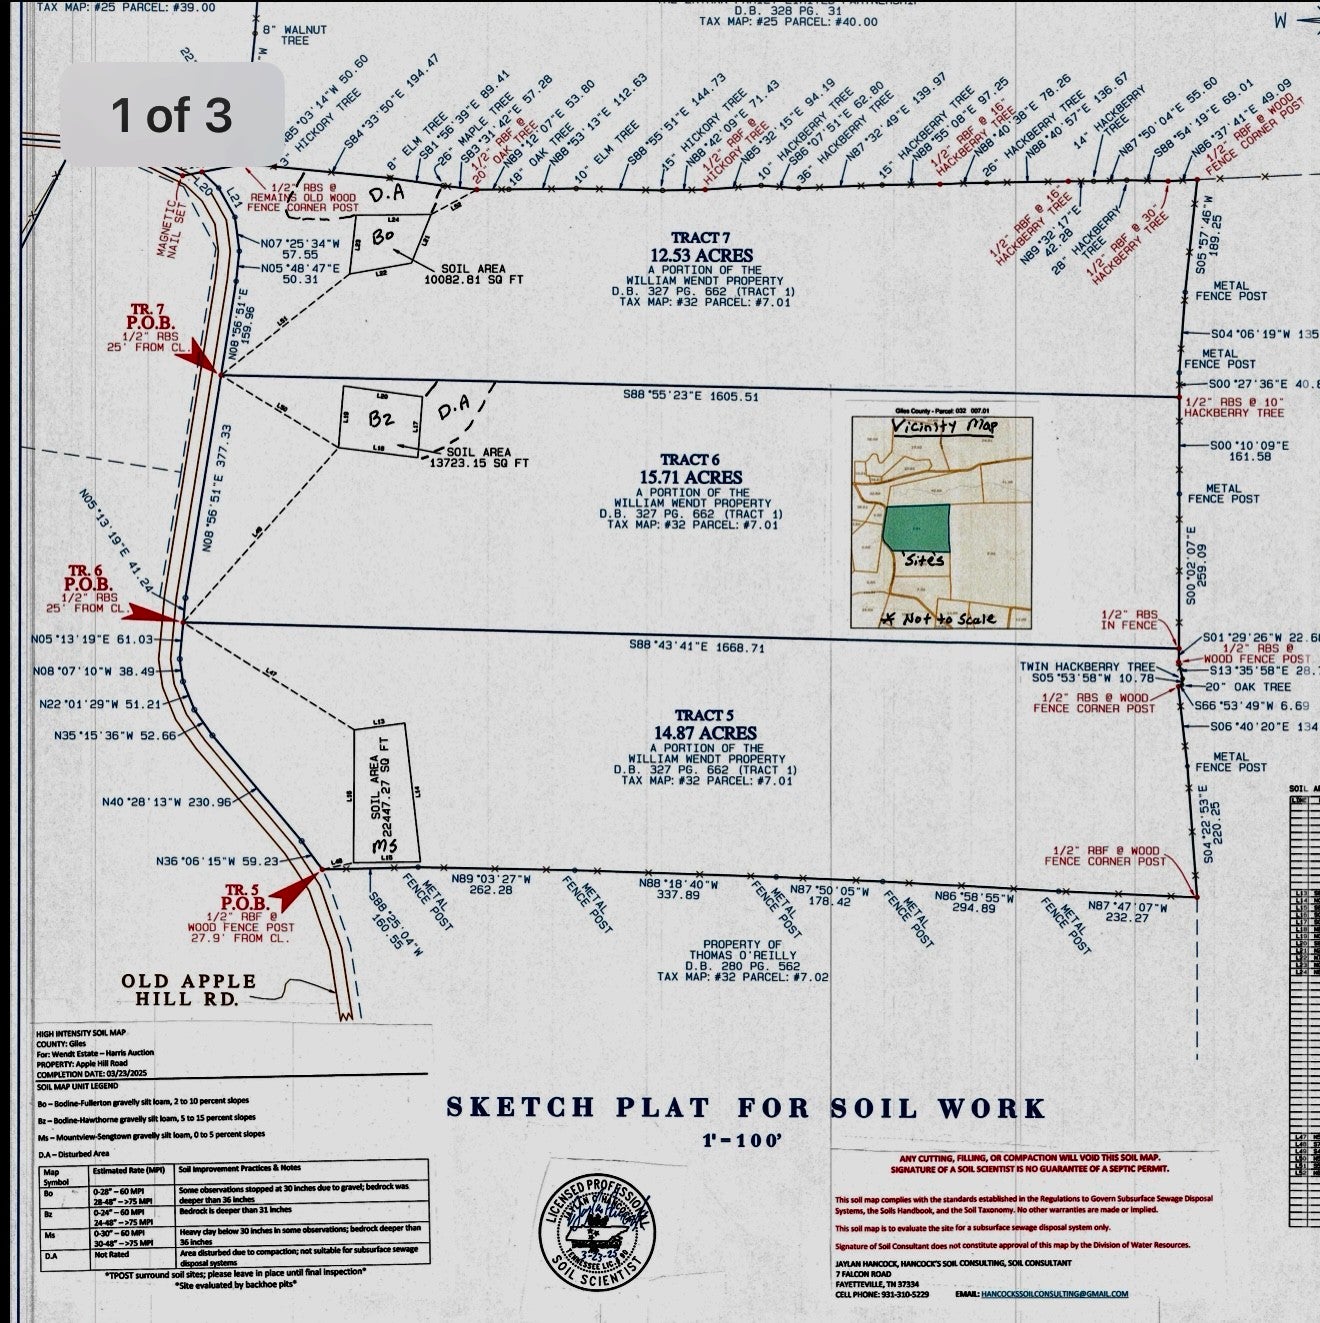 TAX MAP: #25 PARCEL: #39.00
D.B. 328 PG. 31
TAX MAP: #25 PARCEL: #40.00
W
8" WALNUT
TREE
1 of 3
S85°03'14"W 50.60
HICKORY TREE
S84°33'50"E 194.47
8" ELM TREE
S81°56'39"E 89.41
26" MAPLE TREE
S83°31'42"E 57.28
1/2" RBF @
20" OAK TREE
N89°12'07"E 53.80
18" OAK TREE
N88°53'13"E 112.63
10" ELM TREE
S88°55'51"E 144.73
15" HICKORY TREE
N88°42'09"E 71.43
1/2" RBF @
HICKORY TREE
N88°32'15"E 94.19
10" HACKBERRY TREE
S86°07'51"E 62.80
36" HACKBERRY TREE
N87°32'49"E 139.97
15" HACKBERRY TREE
N88°55'08"E 97.25
1/2" RBF @ 16"
HACKBERRY TREE
N88°40'38"E 78.26
26" HACKBERRY TREE
N88°40'57"E 136.67
14" HACKBERRY
TREE
N87°50'04"E 55.60
S88°54'19"E 69.01
N86°37'41"E 49.09
1/2" RBF @ WOOD
FENCE CORNER POST
L20
L21
1/2" RBS @
REMAINS OLD WOOD
FENCE CORNER POST
MAGNETIC
NAIL SET
D.A
L24
Bo
L22
SOIL AREA
10082.81 SQ FT
N07°25'34"W
57.55
N05°48'47"E
50.31
N08°56'51"E
159.96
TRACT 7
12.53 ACRES
A PORTION OF THE
WILLIAM WENDT PROPERTY
D.B. 327 PG. 662 (TRACT 1)
TAX MAP: #32 PARCEL: #7.01
1/2" RBF @ 16"
HACKBERRY TREE
N89°32'17"E
42.28
28" HACKBERRY
TREE
1/2" RBF @ 30"
HACKBERRY TREE
S05°57'46"W
189.25
METAL
FENCE POST
S04°06'19"W 135
METAL
FENCE POST
S00°27'36"E 40.8
1/2" RBS @ 10"
HACKBERRY TREE
S00°10'09"E
161.58
METAL
FENCE POST
TR. 7
P.O.B.
1/2" RBS
25' FROM CL.
S88°55'23"E 1605.51
L20
L19
B2
L17
L18
D.A
SOIL AREA
13723.15 SQ FT
TRACT 6
15.71 ACRES
A PORTION OF THE
WILLIAM WENDT PROPERTY
D.B. 327 PG. 662 (TRACT 1)
TAX MAP: #32 PARCEL: #7.01
Giles County - Parcel: 032 007.01
Vicinity Map
'Site's
* Not to Scale
N08°56'51"E 377.33
N05°13'19"E 41.24
TR. 6
P.O.B.
1/2" RBS
25' FROM CL.
S00°02'07"E
259.09
S88°43'41"E 1668.71
1/2" RBS
IN FENCE
S01°29'26"W 22.68
1/2" RBS @
WOOD FENCE POST
S13°35'58"E 28.7
TWIN HACKBERRY TREE
S05°53'58"W 10.78
20" OAK TREE
1/2" RBS @ WOOD
FENCE CORNER POST
S66°53'49"W 6.69
S06°40'20"E 134
METAL
FENCE POST
N05°13'19"E 61.03
N08°07'10"W 38.49
N22°01'29"W 51.21
N35°15'36"W 52.66
N40°28'13"W 230.96
N36°06'15"W 59.23
L47
L13
L16
L14
L15
SOIL AREA
22447.27 SQ FT
Ms
TRACT 5
14.87 ACRES
A PORTION OF THE
WILLIAM WENDT PROPERTY
D.B. 327 PG. 662 (TRACT 1)
TAX MAP: #32 PARCEL: #7.01
S04°22'53"E
220.25
1/2" RBF @ WOOD
FENCE CORNER POST
TR. 5
P.O.B.
1/2" RBF @
WOOD FENCE POST
27.9' FROM CL.
S88°25'04"W
160.55
METAL
FENCE POST
N89°03'27"W
262.28
METAL
FENCE POST
N88°18'40"W
337.89
METAL
FENCE POST
N87°50'05"W
178.42
METAL
FENCE POST
N86°58'55"W
294.89
METAL
FENCE POST
N87°47'07"W
232.27
PROPERTY OF
THOMAS O'REILLY
D.B. 280 PG. 562
TAX MAP: #32 PARCEL: #7.02
OLD APPLE
HILL RD.
HIGH INTENSITY SOIL MAP
COUNTY: Giles
For: Wendt Estate – Harris Auction
PROPERTY: Apple Hill Road
COMPLETION DATE: 03/23/2025
SOIL MAP UNIT LEGEND
Bo – Bodine-Fullerton gravelly silt loam, 2 to 10 percent slopes
Bz – Bodine-Hawthorne gravelly silt loam, 5 to 15 percent slopes
Ms – Mountview-Sengtown gravelly silt loam, 0 to 5 percent slopes
D.A – Disturbed Area
Map Symbol Estimated Rate (MPI) Soil Improvement Practices & Notes
Bo 0-28" – 60 MPI Some observations stopped at 30 inches due to gravel; bedrock was
28-48" – >75 MPI deeper than 36 inches
Bz 0-24" – 60 MPI Bedrock is deeper than 31 inches
24-48" – >75 MPI
Ms 0-30" – 60 MPI Heavy clay below 30 inches in some observations; bedrock deeper than
30-48" – >75 MPI 36 inches
D.A Not Rated Area disturbed due to compaction; not suitable for subsurface sewage
disposal systems
*TPOST surround soil sites; please leave in place until final inspection*
*Site evaluated by backhoe pits*
SKETCH PLAT FOR SOIL WORK
1"=100'
LICENSED PROFESSIONAL
SOIL SCIENTIST
3-23-25
ANY CUTTING, FILLING, OR COMPACTION WILL VOID THIS SOIL MAP.
SIGNATURE OF A SOIL SCIENTIST IS NO GUARANTEE OF A SEPTIC PERMIT.
This soil map complies with the standards established in the Regulations to Govern Subsurface Sewage Disposal
Systems, the Soils Handbook, and the Soil Taxonomy. No other warrantees are made or implied.
This soil map is to evaluate the site for a subsurface sewage disposal system only.
Signature of Soil Consultant does not constitute approval of this map by the Division of Water Resources.
JAYLAN HANCOCK, HANCOCK'S SOIL CONSULTING, SOIL CONSULTANT
7 FALCON ROAD
FAYETTEVILLE, TN 37334
CELL PHONE: 931-310-5229 EMAIL: HANCOCKSSOILCONSULTING@GMAIL.COM